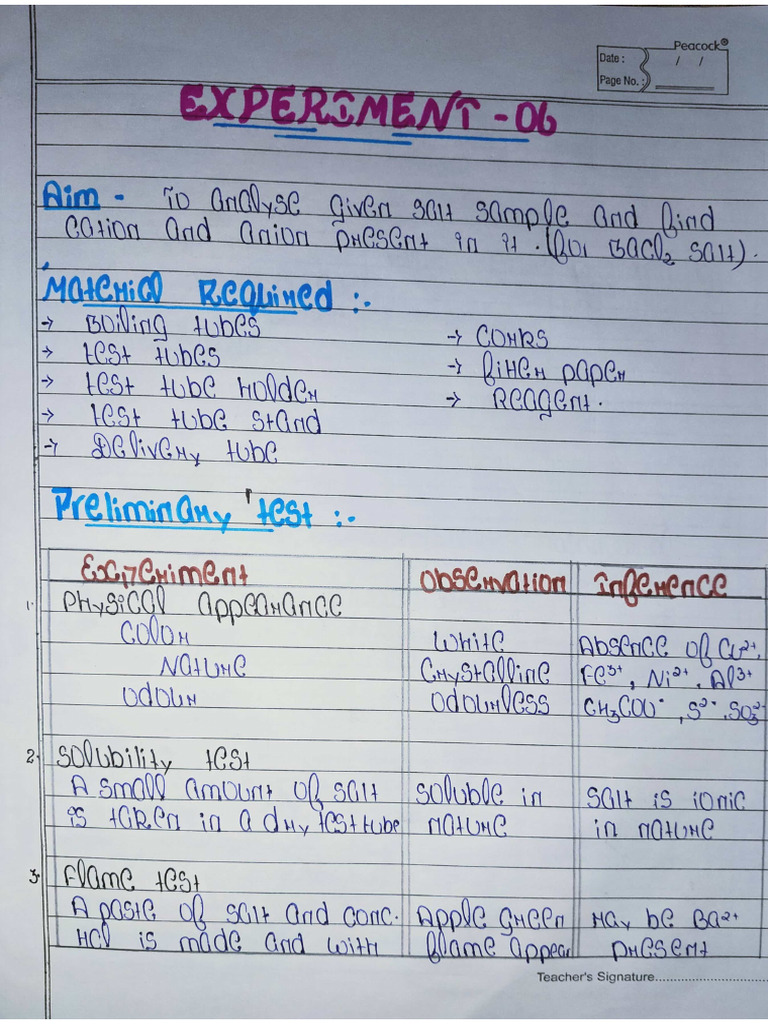 Peacock®
Date : / /
Page No. :
EXPERIMENT - 06
Aim - To analyse given salt sample and find
cation and anion present in it. (for BaCl₂ salt).
Material Required :-
→ Boiling tubes → corks
→ test tubes → filter paper
→ test tube holder → Reagent.
→ test tube stand
→ Delivery tube
Preliminary test :-
Experiment Observation Inference
1. Physical appearance
Colour White Absence of Cu²⁺,
Nature Crystalline Fe³⁺, Ni²⁺, Al³⁺
Odour Odourless CH₃COO⁻, S²⁻, SO₃²⁻
2. Solubility test
A small amount of salt Soluble in Salt is ionic
is taken in a dry test tube nature in nature
3. Flame test
A paste of salt and conc. Apple green May be Ba²⁺
HCl is made and with flame appear present
Teacher's Signature